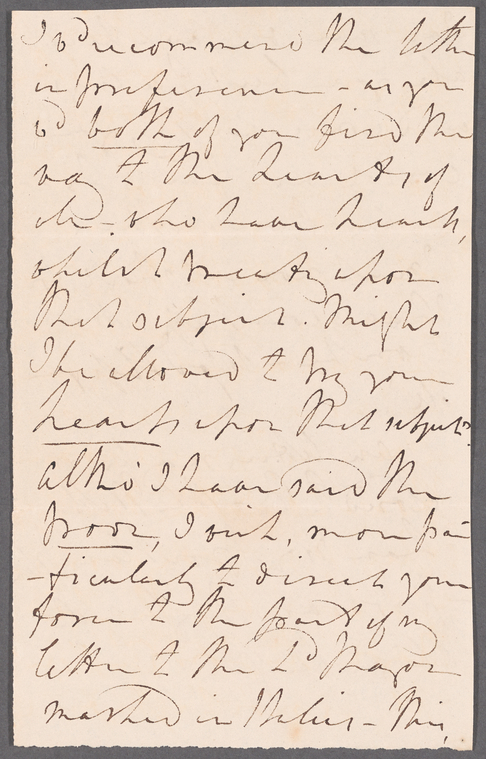 I wd recommend the latter
in preference - as you
wd both of you find the
way to the hearts of
all - who have hearts,
whilst treating upon
that subject. Might
I be allowed to try your
hearts upon that subject?
altho' I have said the
poor, I wish, more par
-ticularly to direct your
force to the part of my
letter to the Ld Mayor
marked in Italics - this,